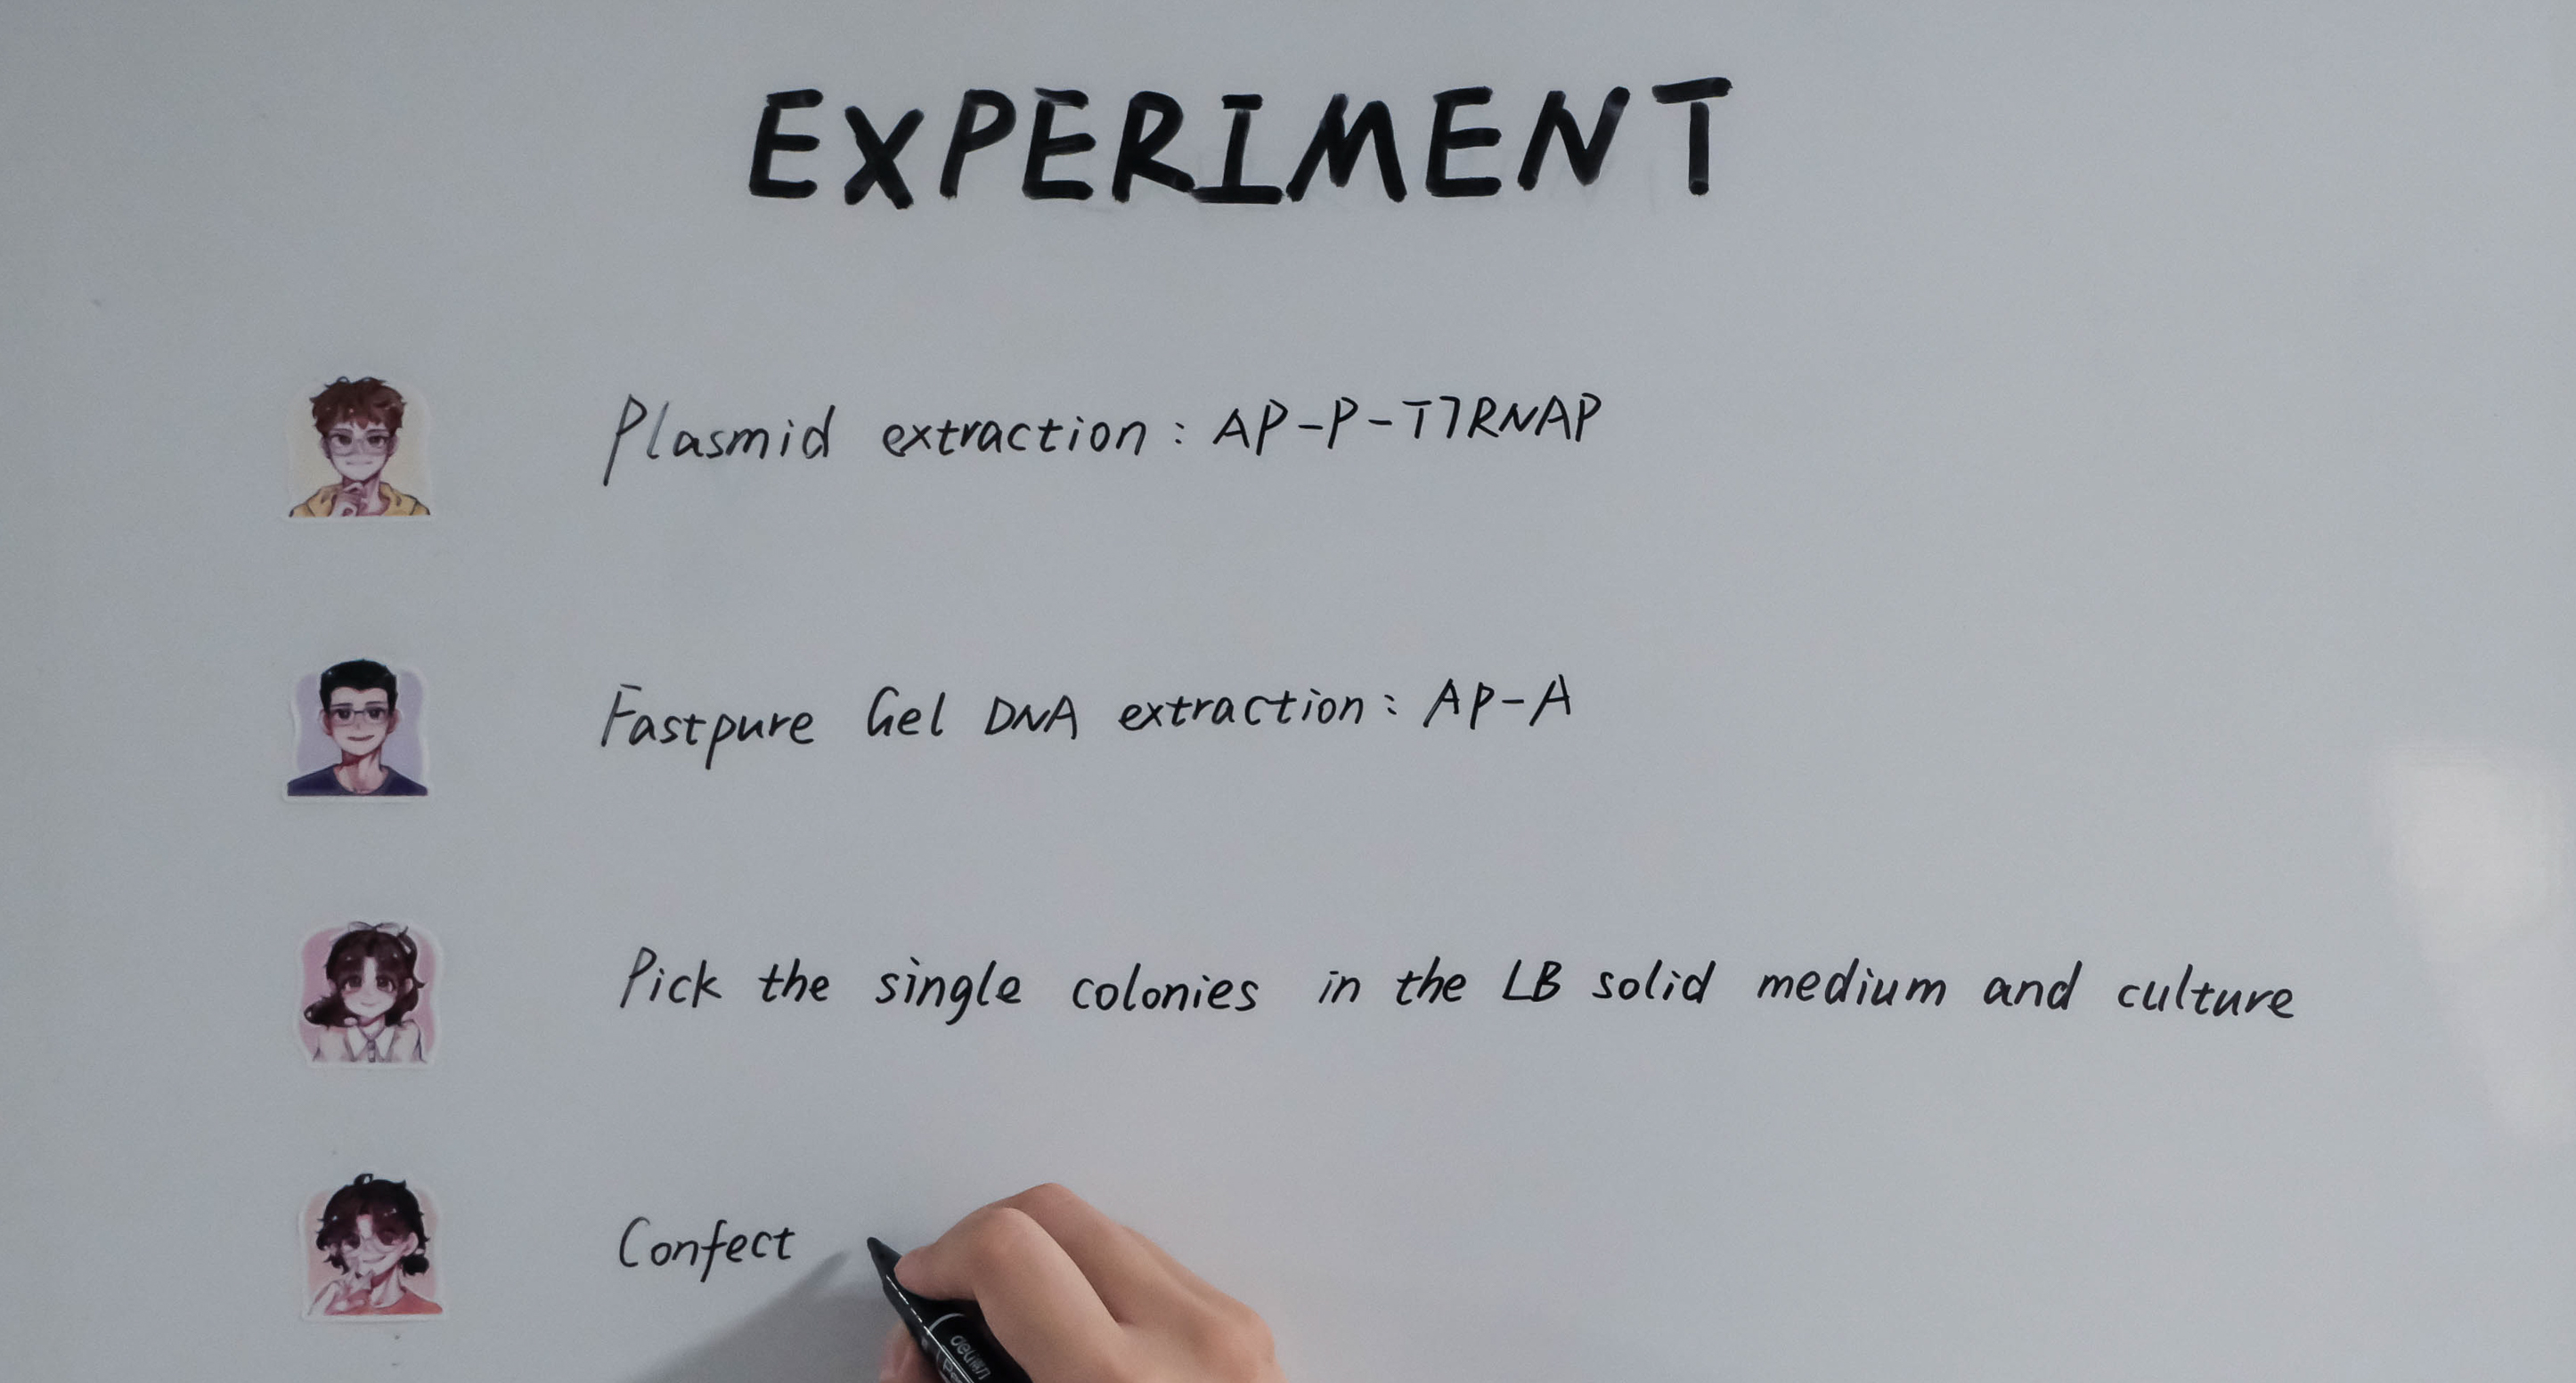 EXPERIMENT
Plasmid extraction: AP-P-T7RNAP
Fastpure Gel DNA extraction: AP-A
Pick the single colonies in the LB solid medium and culture
Confect
deli